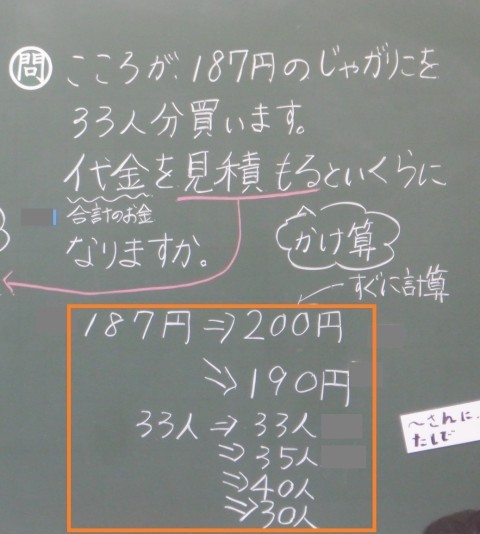 問 こころが、187円のじゃがりこを
33人分買います。
代金を見積もるといくらに
合計のお金
なりますか。
かけ算
すぐに計算
187円⇒200円
⇒190円
33人⇒33人
⇒35人
⇒40人
⇒30人
〜さんに、
たしで